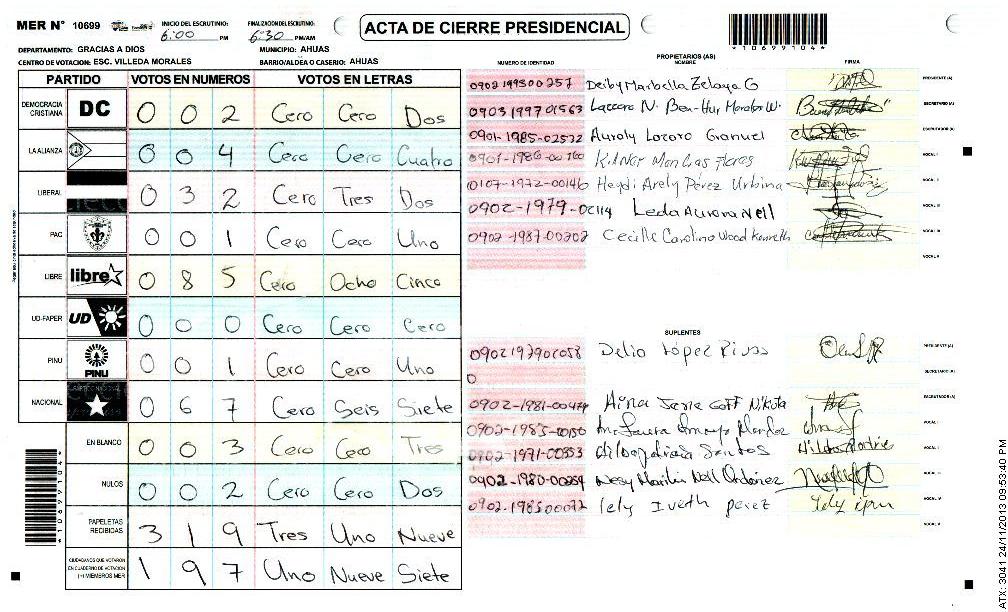 MER N° 10699
INICIO DEL ESCRUTINIO: 6:00 PM
FINALIZACION DEL ESCRUTINIO: 6:30 PM/AM
ACTA DE CIERRE PRESIDENCIAL
*10699104*
DEPARTAMENTO: GRACIAS A DIOS
MUNICIPIO: AHUAS
CENTRO DE VOTACION: ESC. VILLEDA MORALES
BARRIO/ALDEA O CASERIO: AHUAS
PARTIDO VOTOS EN NUMEROS VOTOS EN LETRAS
DEMOCRACIA CRISTIANA DC 0 0 2 Cero Cero Dos
LA ALIANZA 0 0 4 Cero Cero Cuatro
LIBERAL 0 3 2 Cero Tres Dos
PAC 0 0 1 Cero Cero Uno
LIBRE libre 0 8 5 Cero Ocho Cinco
UD-FAPER UD 0 0 0 Cero Cero Cero
PINU PINU 0 0 1 Cero Cero Uno
NACIONAL 0 6 7 Cero Seis Siete
EN BLANCO 0 0 3 Cero Cero Tres
NULOS 0 0 2 Cero Cero Dos
PAPELETAS RECIBIDAS 3 1 9 Tres Uno Nueve
CIUDADANOS QUE VOTARON EN CUADERNO DE VOTACION (+) MIEMBROS MER 1 9 7 Uno Nueve Siete
*10699104*
PROPIETARIOS (AS)
NUMERO DE IDENTIDAD NOMBRE FIRMA
0902199500257 Deiby Marbella Zelaya G PRESIDENTE (A)
0903199701563 Lazzaro N. Ben-Hur Morales W. SECRETARIO (A)
0901-1985-02522 Auroly Lozoro Granuel ESCRUTADOR (A)
0901-1986-00160 VOCAL I
0107-1972-00146 Heydi Arely Pérez Urbina VOCAL II
0902-1979-02114 Leda Aurora Nell VOCAL III
0902-1987-00202 Cecilia Carolina Wood Kenneth VOCAL IV
VOCAL V
SUPLENTES
Delio López Rivas PRESIDENTE (A)
0 SECRETARIO (A)
0902-1981-00474 Goff Nikuta ESCRUTADOR (A)
0902-1985-00150 VOCAL I
0902-1971-00353 VOCAL II
0902-1980-00254 Nesy Marilu Nell Ordonez VOCAL III
0902-1985 00072 Lely Iveth perez VOCAL IV
VOCAL V
ATX: 3041 24/11/2013 09:53:40 PM